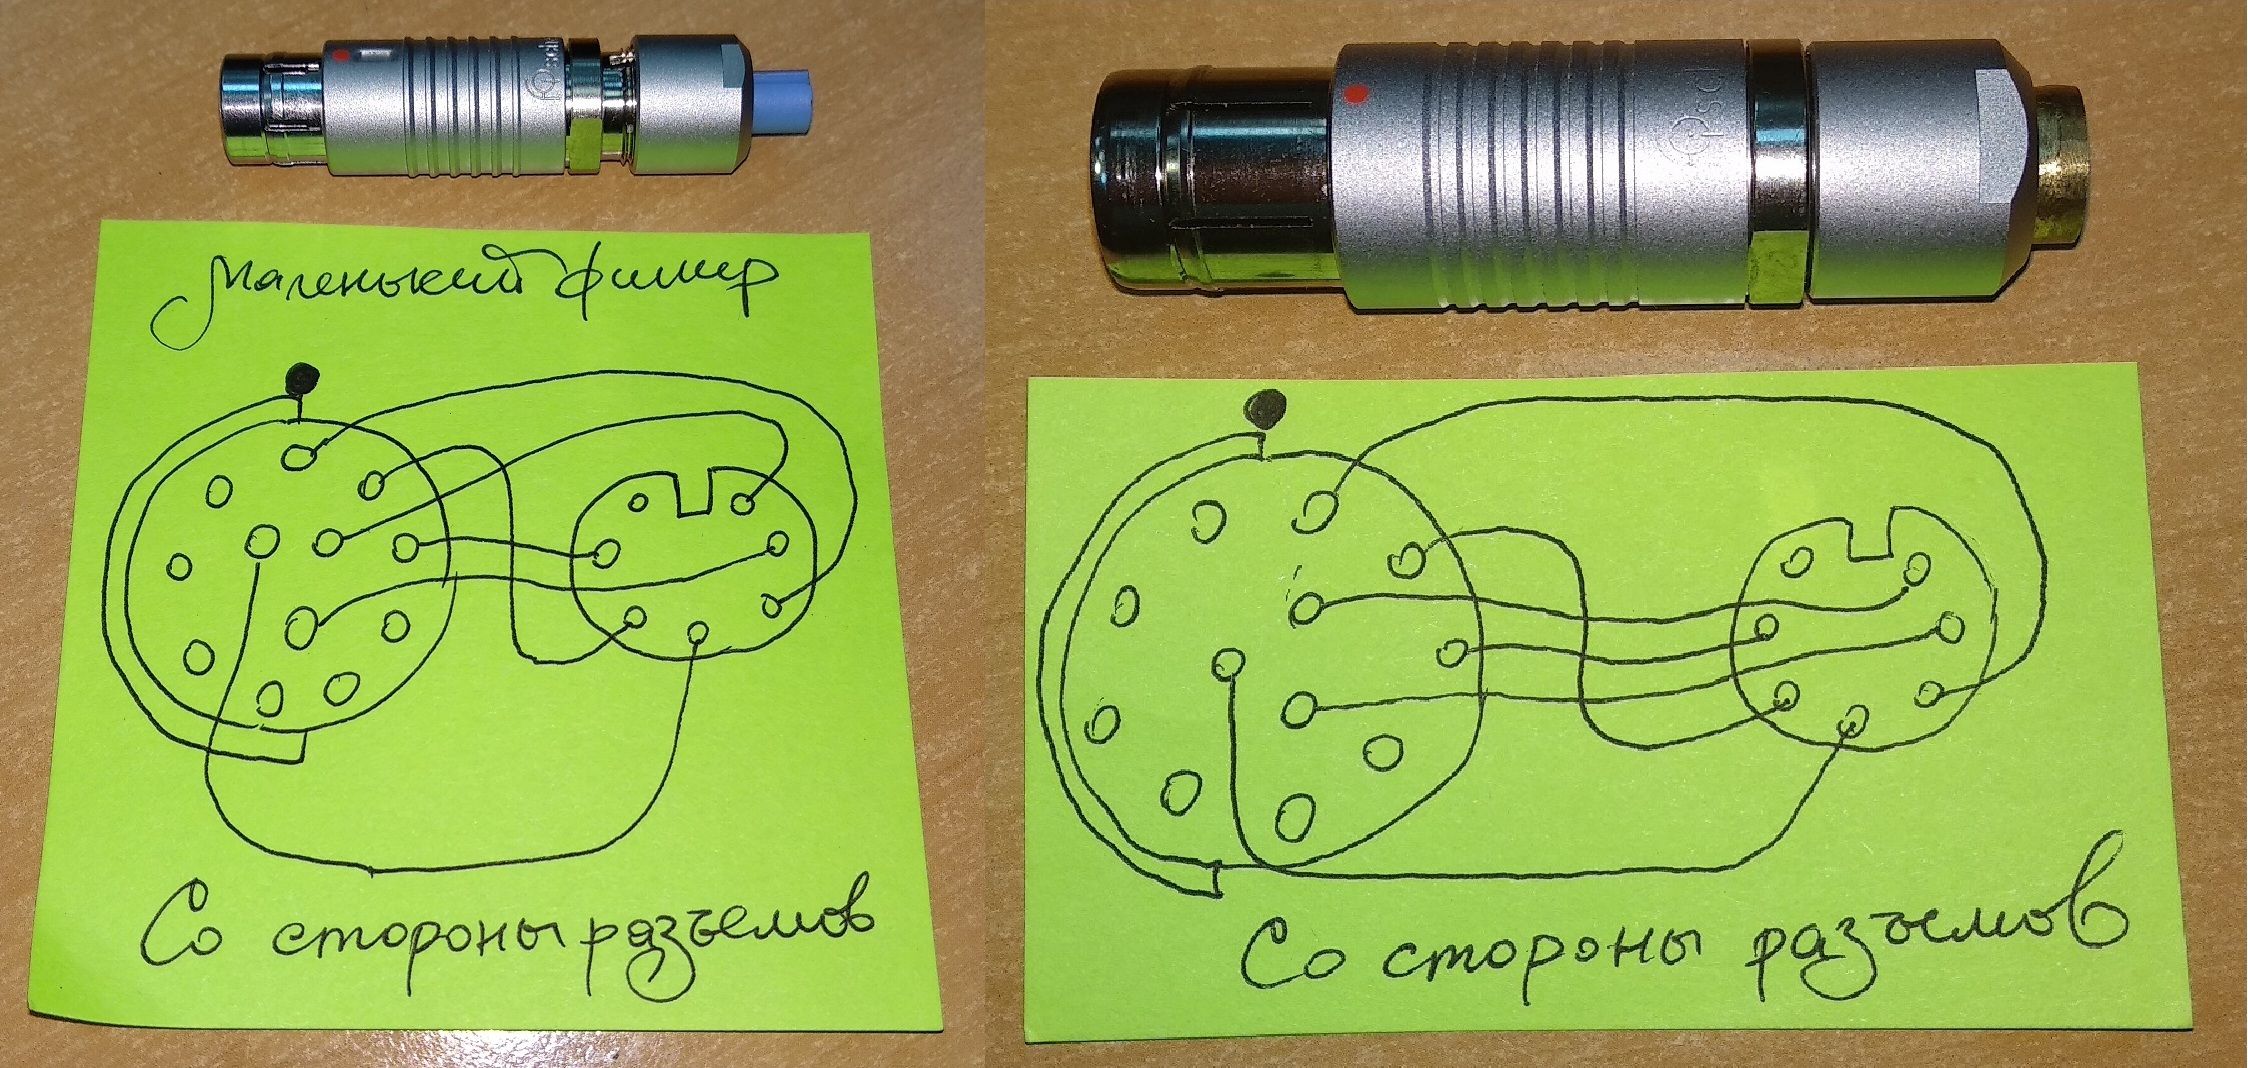 Маленький фишер
Со стороны разъемов
Со стороны разъемов